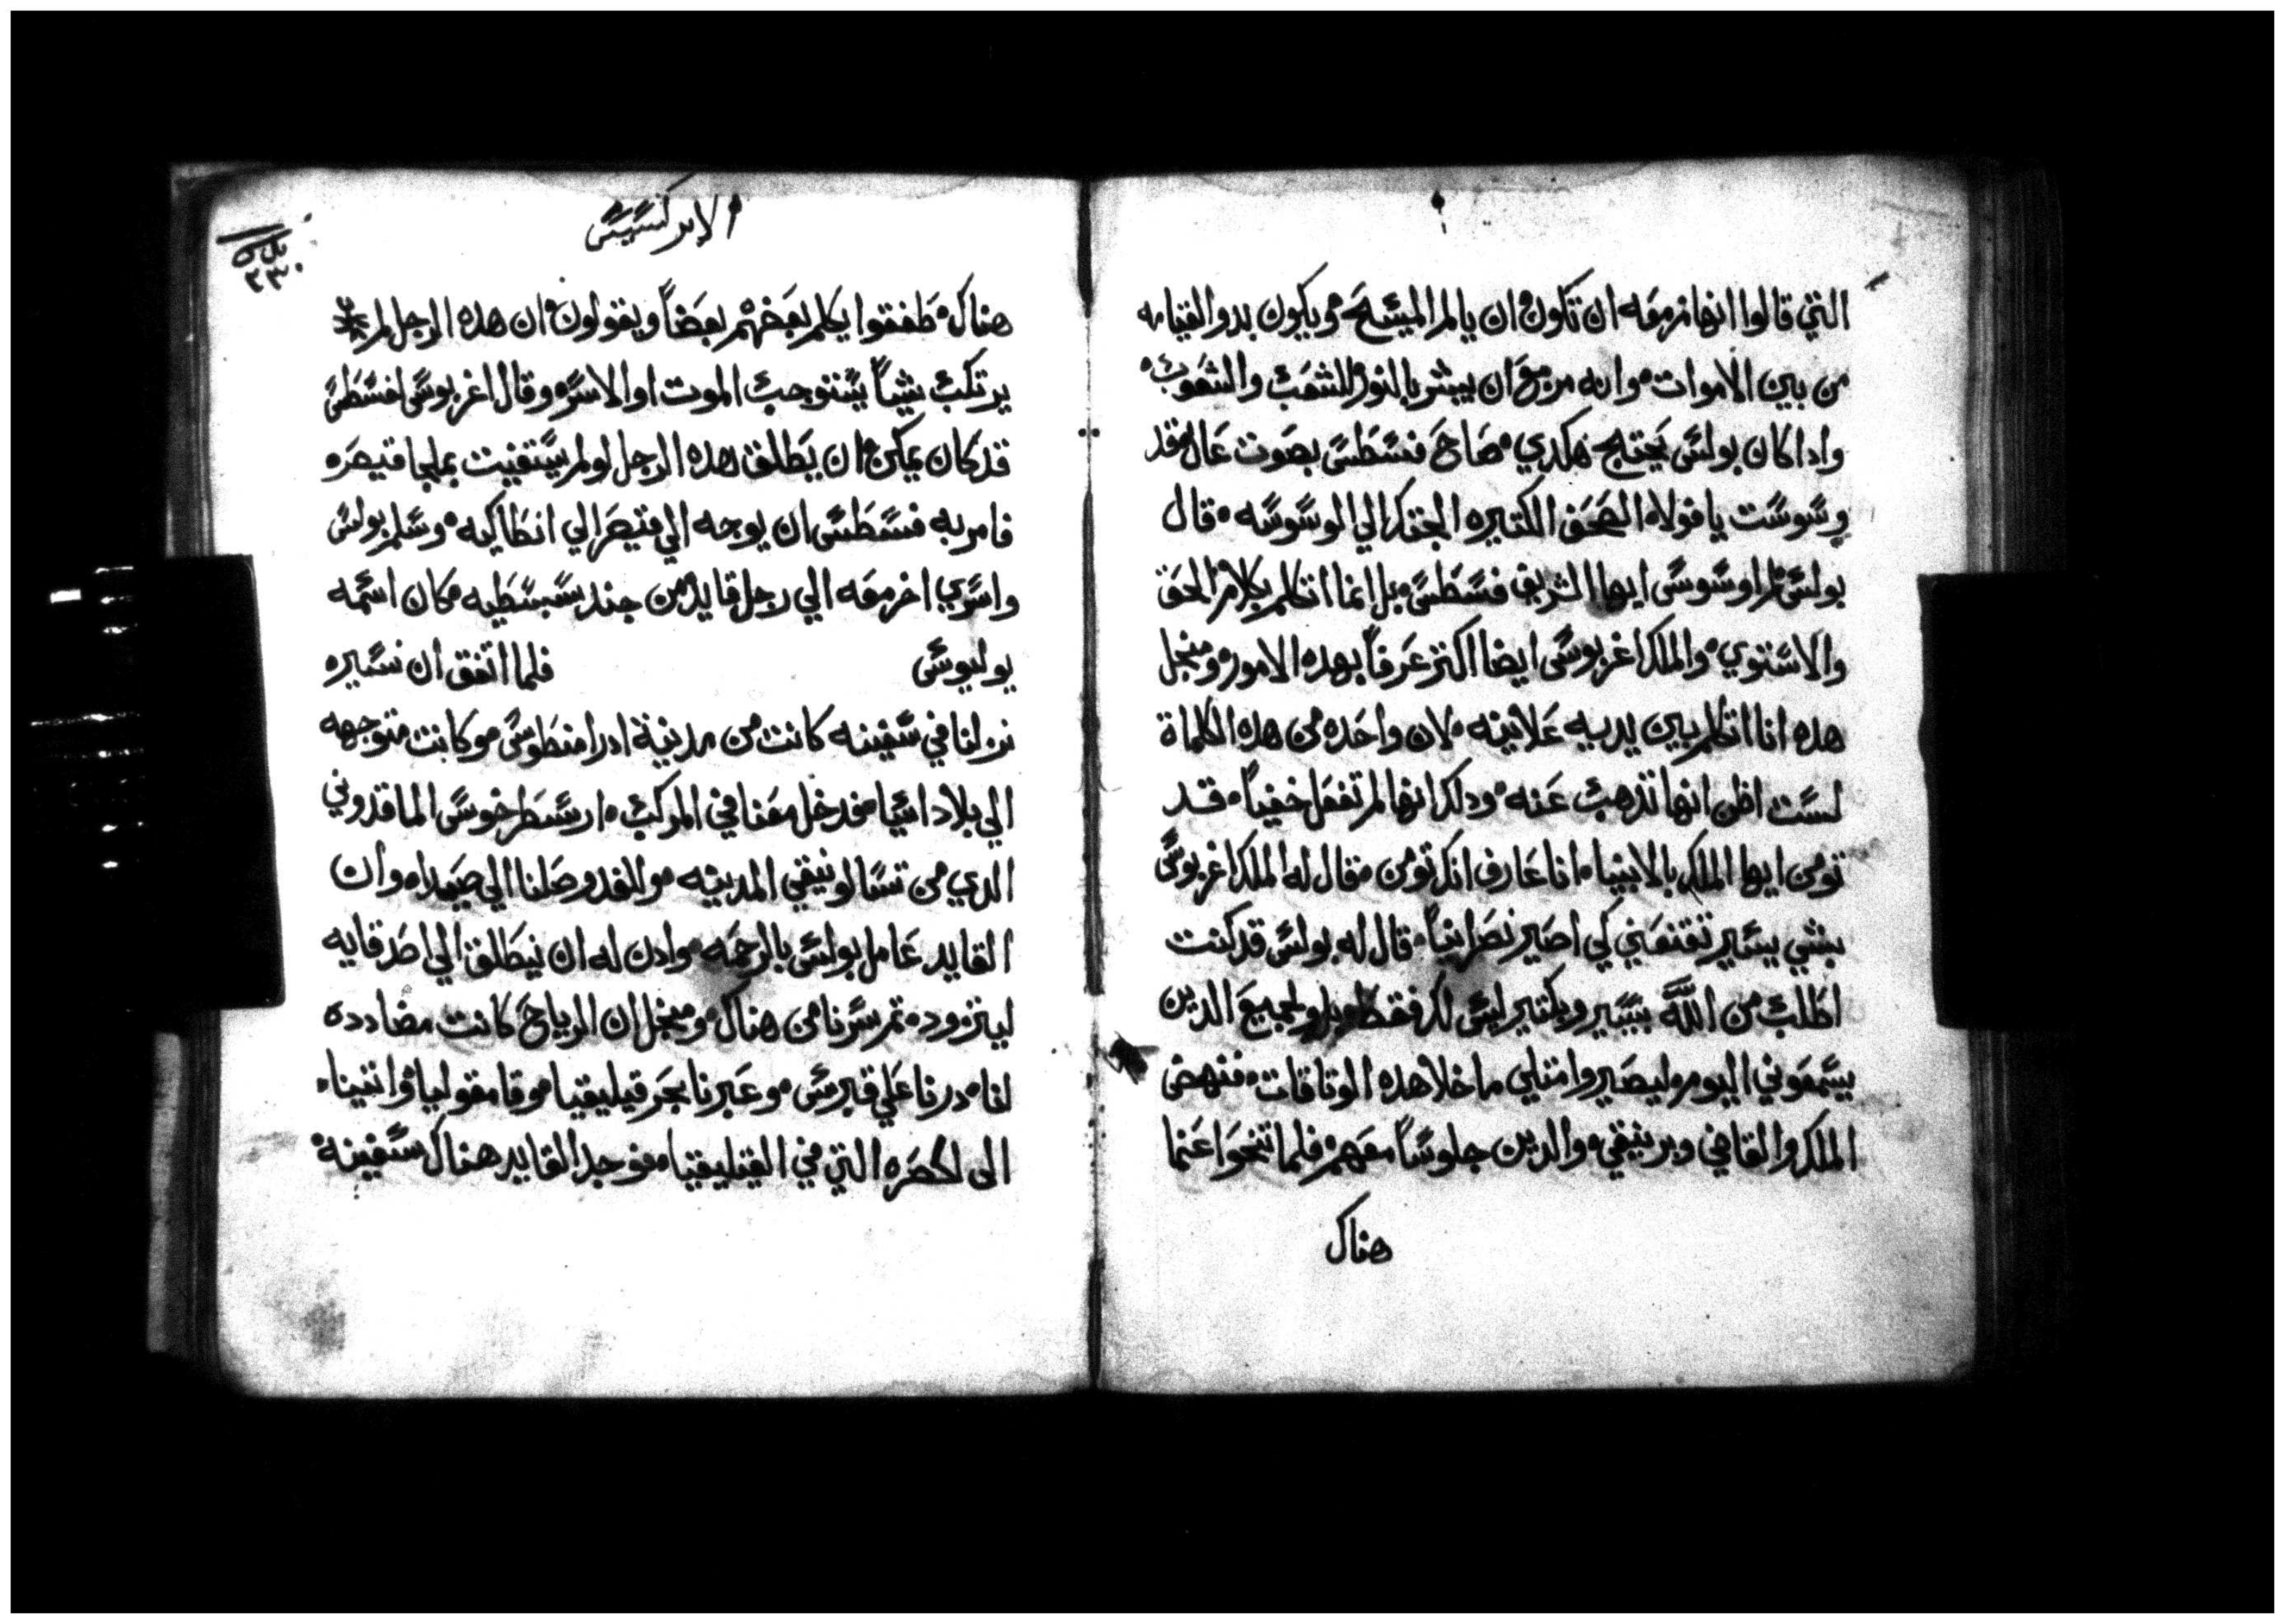 التي قالوا انها مزمعه ان تكون ان يالم المسيح ويكون بدو القيامه
من بين الاموات وانه مزمع ان يبشر بالنور للشعب والشعوب
وادا كان بولس يحتج هكدي صاح فسطس بصوت عال قد
وسوست يا فولا الصحف الكتيره الجتك الي الوسوسه قال
بولس لم اوسوس ايها الشريف فسطس بل انما اتكلم بكلام الحق
والاستوي والملك اغربوس ايضا اكتر عرفاً بهده الامور ومنجل
هده انا اتكلم بين يديه علانيه لان واحده من هده الكلماة
لست اظن انها تدهب عنه ودلك انها لم تفعل خفياً قد
تومن ايها الملك بالانبيا انا عارف انك تومن فقال له الملك اغربوس
بشي يسير تقنعني كي اصير نصرانياً قال له بولس قد كنت
اطلب من الله بيسير وبكتير ليس لك فقط بل ولجميع الدين
يسمعوني اليوم ليصيروا متلي ما خلا هده الوتاقات فنهض
الملك والقاضي وبرنيقي والدين جلوساً معهم فلما تنحوا عنما
هناك
الابركسيس
٢٣٠
هناك طفقوا يكلم بعضهم بعضاً ويقولون ان هده الرجل لم
يرتكب شياً يستوجب الموت او الاسر وقال اغربوس لفسطس
قد كان يمكن ان يطلق هده الرجل لو لم يستغيت بملجا قيصر
فامر به فسطس ان يوجه الي قيصر الي انطاكيه وسلم بولس
واسري اخر معه الي رجل قايد من جند سبسطيه كان اسمه
يوليوس فلما اتفق ان نسير
نزلنا في سفينه كانت من مدينة ادرامنطوس وكانت متوجهه
الي بلاد اسيا فدخل معنا في المركب ارسطرخوس الماقدوني
الدي من تسالونيقي المدينه والغد وصلنا الي صيدا وان
القايد عامل بولس بالرحمه وادن له ان ينطلق الي اصدقايه
ليتزود تم سرنا من هناك ومنجل ان الرياح كانت مضادده
لنا درنا علي قبرس وعبرنا بحر قيليقيا وقامفوليا واتينا
الى لكصره التي في القيليقيا فوجد القايد هناك سفينة